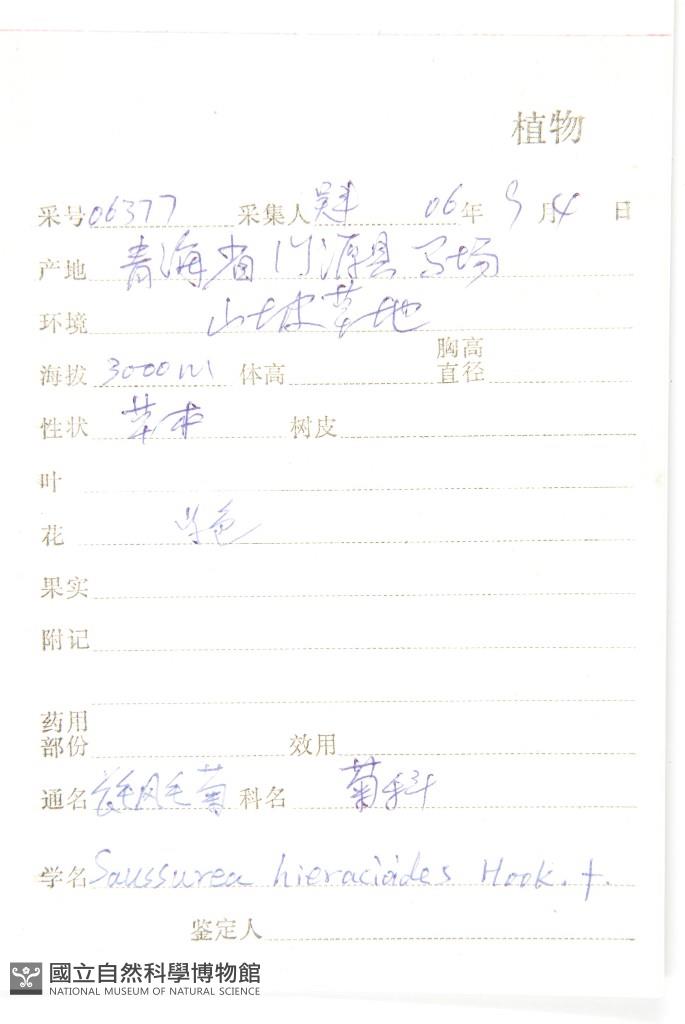 植物
采号 06377 采集人 06年 9月 4日
产地 青海省门源县马场
环境 山坡草地
海拔 3000m 体高 胸高直径
性状 草本 树皮
叶
花 色
果实
附记
药用部份 效用
通名 长毛风毛菊 科名 菊科
学名 Saussurea hieracioides Hook. f.
鉴定人
國立自然科學博物館
NATIONAL MUSEUM OF NATURAL SCIENCE